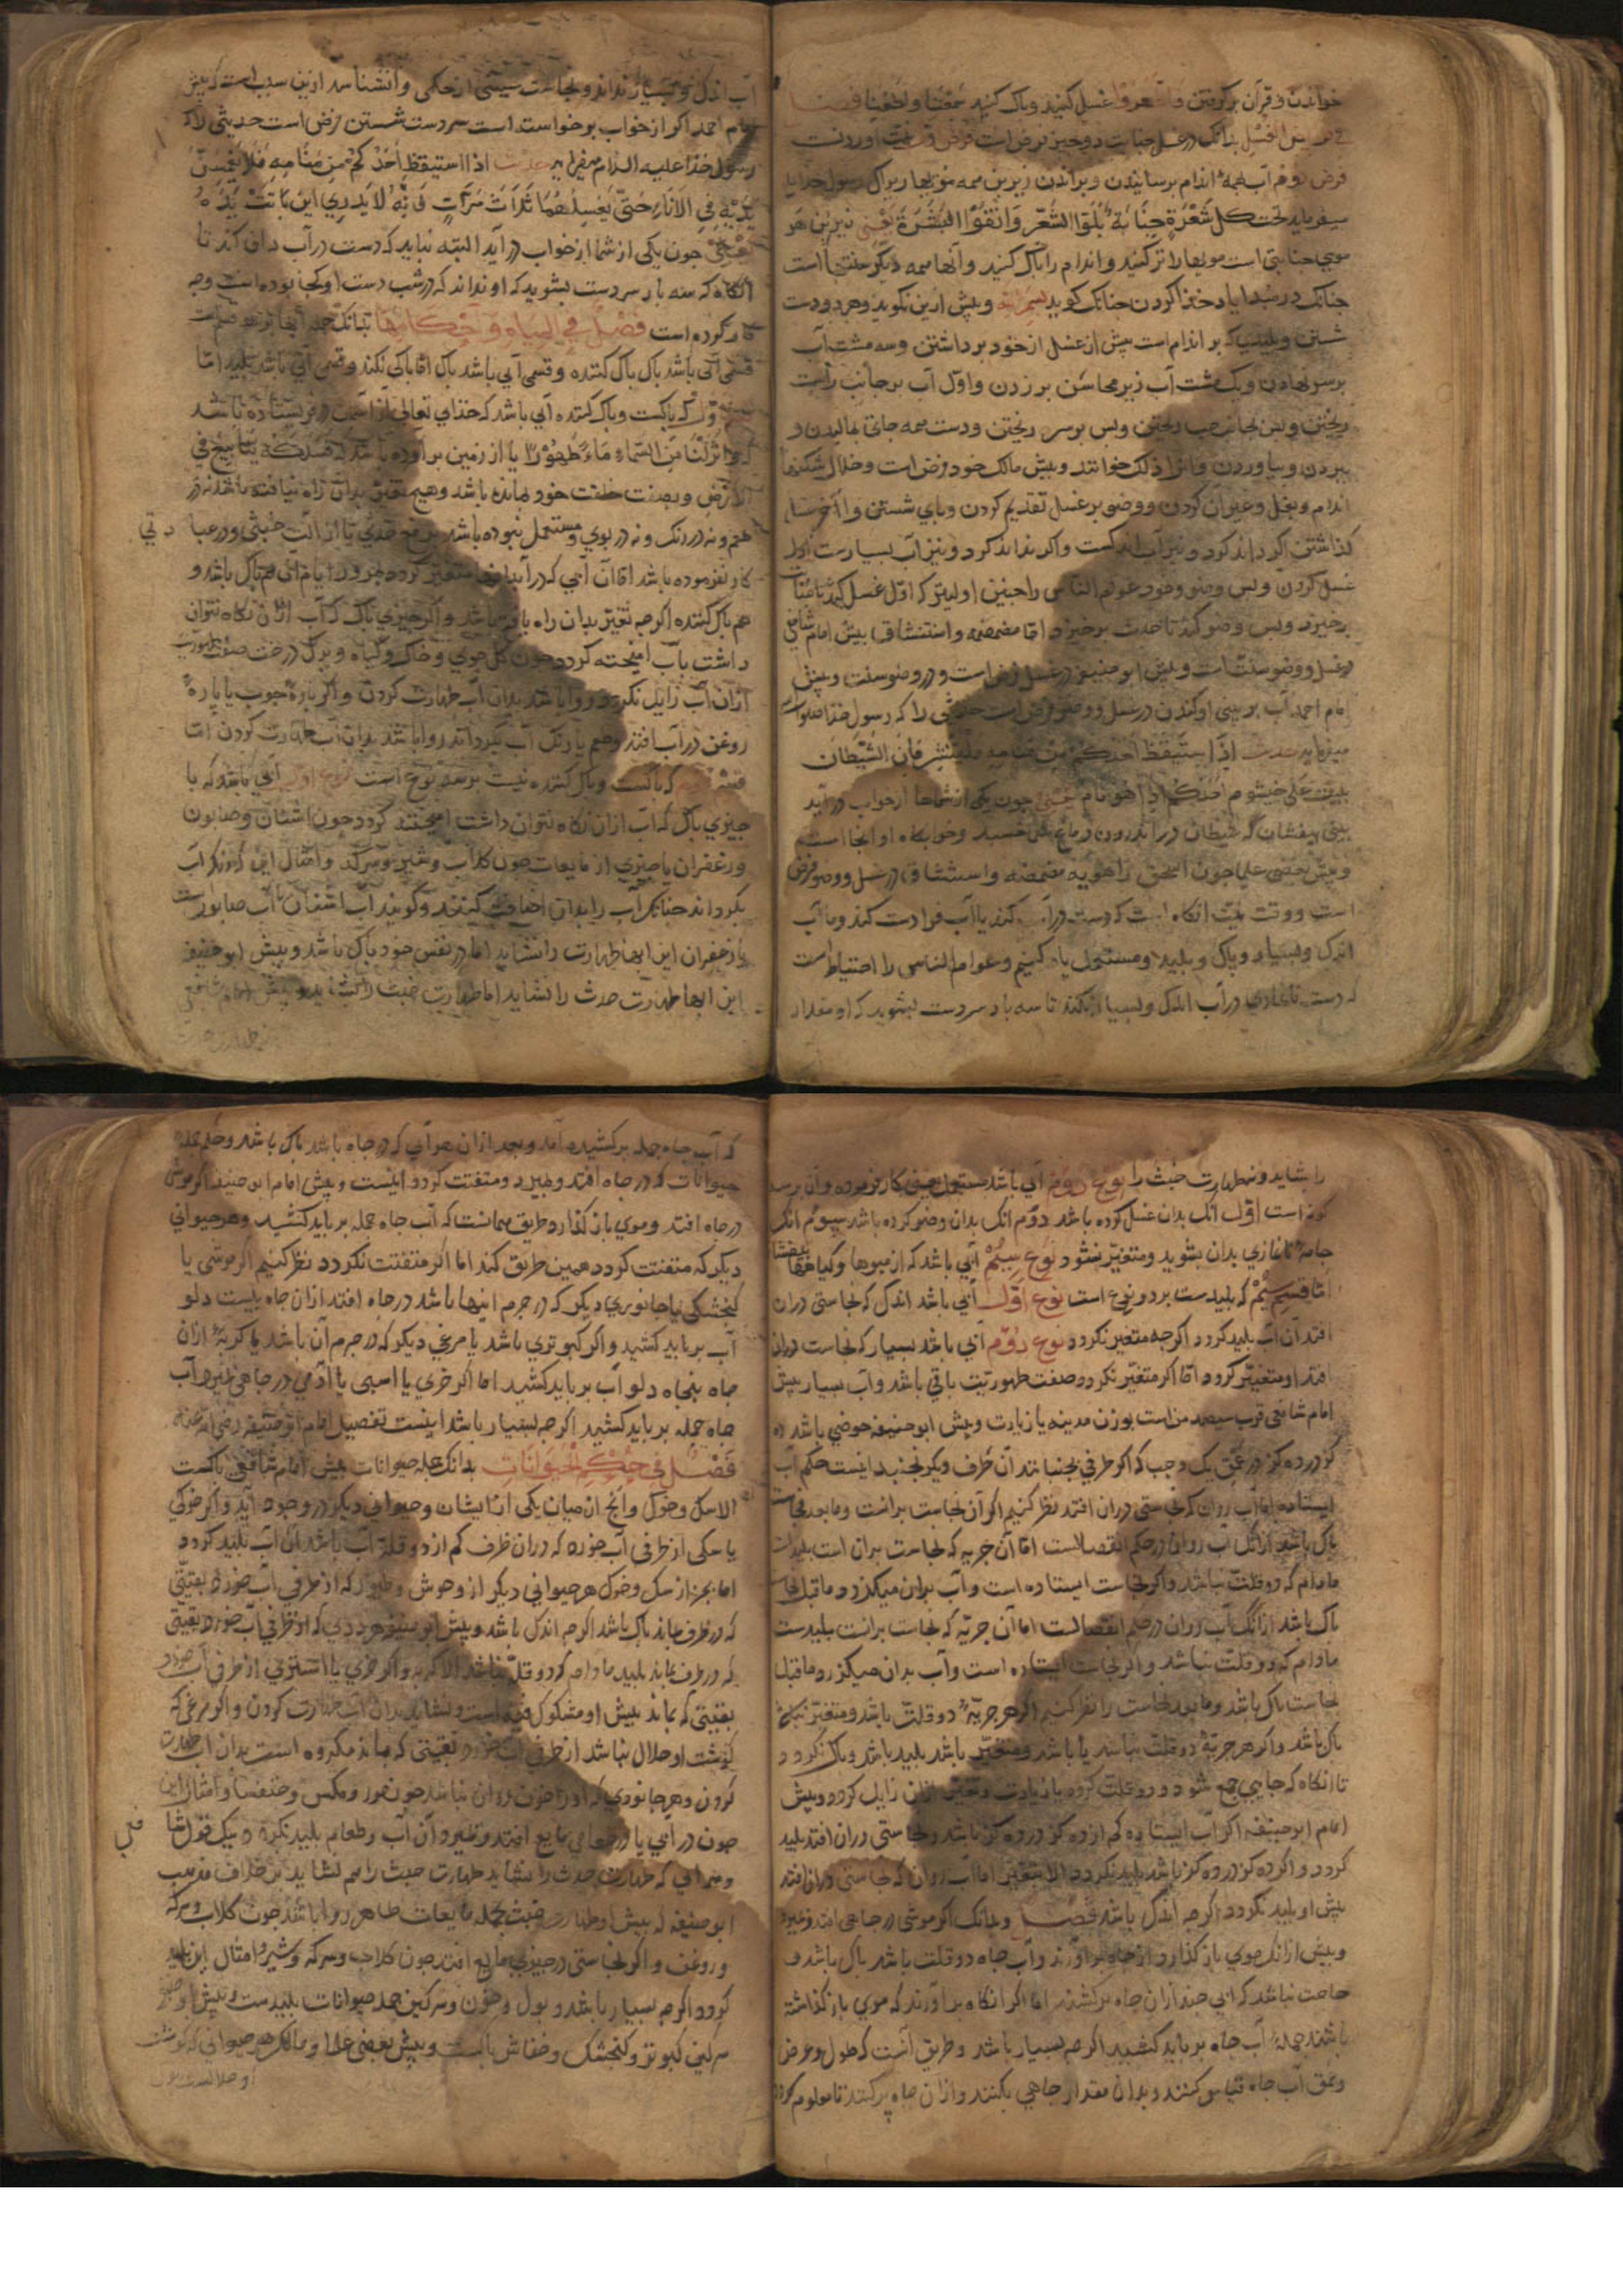 خواندن و قرآن برگرفتن غسل کنید و پاک کنید
فی الغسل بدانک در غسل جنابت دو چیز فرض است آوردنست
فرض دوم آب بهمه اندام برسانیدن و براندن زیر بن همه مویها زیراک رسول خدا
میفرماید تحت کل شعرة جنابة بلوا الشعر وانقوا البشرة یعنی زیر بن هر
موی جنابتی است مویها را تر کنید و اندام را پاک کنید و آنها همه دیگر سنتهاست
جنانک در مبدا یاد خدا کردن جنانک کوید بسم الله و بیش ازین نکوید و هر دو دست
شستن و بلیدی که بر اندام است بیش از غسل از خود برداشتن و سه مشت آب
بر سر نهادن و یک مشت آب زیر محاسن بر زدن و اول آب بر جانب راست
ریختن و بس بجانب جب ریختن و بس بر سر ریختن و دست همه جای بمالیدن و
اندام و بغل و غیر آن کردن و وضو بر غسل تقدیم کردن و بای شستن
غسل کردن و بس وضو عوام الناس را جنین اولیتر که اول غسل کند
برخیزد و بس وضو کند تا حدث برخیزد اما مضمضه و استنشاق بیش امام شافعی
در غسل و وضو سنت است و بیش ابو حنیفه در غسل فرض است و در وضو سنت و بیش
امام احمد آب بر بینی اوکندن در غسل و وضو فرض است حدیثی را که رسول خدا
میفرماید حدیث اذا استیقظ احدکم من منامه فلینتثر فان الشیطان
یبیت علی خیشوم احدکم اذا هو نام یعنی جون یکی از شماها از خواب درآید
بینی بیفشان که شیطان در اندرون دماغ می خسبد و خوابکاه او آنجا است
و بیش بعضی علما جون اسحق راهویه مضمضه و استنشاق در غسل و وضو فرض
است و وقت نیت آنکاه است که دست در آب کند یا آب فرا دست کند و ما آب
اندک و بسیار و پاک و بلید و مستعمل یاد کنیم و عوام الناس را احتیاط است
که دست نانمازی در آب اندک و بسیار نکند تا سه بار سر دست بشوید که او مقدار
آب اندک و بسیار نداند و نجاست
امام احمد اکر از خواب برخواسته است سر دست شستن فرض است حدیثی را که
رسول خدا علیه السلام میفرماید حدیث اذا استیقظ احدکم من منامه فلا یغمسن
یدیه فی الاناء حتی یغسلهما ثلاث مرات فانه لا یدری این باتت یده
یعنی جون یکی از شما از خواب درآید البته نباید که دست در آب دان کند تا
آنکاه که سه بار سر دست بشوید که او نداند که در شب دست او کجا بوده است و چه
کار کرده است فصل فی المیاه و احکامها بدانک جمله آبها بر سه قسم است
قسمی آبی باشد پاک پاک کننده و قسمی آبی باشد پاک اما پاکی نکند و قسمی آبی باشد بلید اما
قسم اول که پاکست و پاک کننده آبی باشد که خدای تعالی از آسمان فرو فرستاده باشد
که وانزلنا من السماء ماء طهورا یا از زمین برآورده باشد که فسلکه ینابیع فی
الارض و بصفت خلقت خود بمانده باشد و هیچ تغییر بدان راه نیافته باشد نه در
طعم و نه در رنک و نه در بوی و مستعمل نبوده باشد
کار نفرموده باشد اما آن آبی که در آبدانها متغیر کردد
هم پاک کننده اکرچه تغیر بدان راه یافته باشد و اکر چیزی پاک که آب از آن نکاه نتوان
داشت بآب آمیخته کردد جون کل جوی و خاک و کیاه و برک درخت صفت طهوریت
از آن آب زایل نکردد و روا باشد بدان آب طهارت کردن و اکر پاره جوب یا پاره
روغن در آب افتد و طعم یا رنک آب بکرداند روا باشد بدان آب طهارت کردن اما
قسم دوم که پاکست و پاک کننده نیست بر سه نوع است نوع اول آبی باشد که با
چیزی پاک که آب از آن نکاه نتوان داشت آمیخته کردد جون اشنان و صابون
و زعفران یا چیزی از مایعات جون کلاب و شیر و سرکه و امثال این که رنک آب
بکرداند جنانک آب را بدان اضافت کنند و کویند آب اشنان یا آب صابونست
یا زعفران این آبها طهارت را نشاید اما در نفس خود پاک باشد و بیش ابو حنیفه
این آبها طهارت حدث را نشاید اما طهارت خبث را شاید و بیش امام شافعی
را شاید و نه طهارت خبث را نوع دوم آبی باشد مستعمل یعنی کار فرموده و آن بر سه
کونه است اول آنک بدان غسل کرده باشد دوم آنک بدان وضو کرده باشد سیوم آنک
جامه نانمازی بدان بشوید و متغیر نشود نوع سیم آبی باشد که از میوها و کیاهها
اما قسم سیم که بلیدست بر دو نوع است نوع اول آبی باشد اندک که نجاستی در آن
افتد آن آب بلید کردد اکرچه متغیر نکردد نوع دوم آبی باشد بسیار که نجاست در آن
افتد و متغیر کردد اما اکر متغیر نکردد صفت طهوریت باقی باشد و آب بسیار بیش
امام شافعی قرب سیصد من است بوزن مدینه یا زیادت و بیش ابو حنیفه حوضی باشد ده
کز در ده کز در عمق یک وجب که اکر طرفی بجنبانند آن طرف دیکر نجنبد اینست حکم آب
ایستاده اما آب روان که نجاستی در آن افتد نظر کنیم اکر آن نجاست بر آنست و ما بعد نجاست
پاک باشد از آنک آب روان در حکم انفصالست اما آن جریه که نجاست بر آن است بلیدست
مادام که دو قلت نباشد و اکر نجاست ایستاده است و آب بر آن میکذرد ما قبل نجاست
پاک باشد از آنک آب روان در حکم انفصالست اما آن جریه که نجاست بر آنست بلیدست
مادام که دو قلت نباشد و اکر نجاست ایستاده است و آب بدان میکزرد ما قبل
نجاست پاک باشد و ما بعد نجاست را نظر کنیم اکر هر جریه دو قلت باشد و متغیر نباشد
پاک باشد و اکر هر جریه دو قلت نباشد یا باشد و متغیر باشد بلید باشد و پاک نکردد
تا آنکاه که جایی جمع شود و دو قلت کردد یا زیادت و تغیر از آن زایل کردد و بیش
امام ابو حنیفه اکر آب ایستاده کم از ده کز در ده کز باشد و نجاستی در آن افتد بلید
کردد و اکر ده کز در ده کز باشد بلید نکردد الا بتغیر اما آب روان که نجاستی در آن افتد
بیش او بلید نکردد اکرچه اندک باشد فصل و بدانک اکر موشی در چاهی افتد و بمیرد
و بیش از آنک موی باز کذارد از چاه برآورند و آب چاه دو قلت باشد پاک باشد و
حاجت نباشد که آبی چند از آن چاه برکشند اما اکر آنکاه برآورند که موی باز کذاشته
باشد جمله آب چاه بر باید کشید اکرچه بسیار باشد و طریق آنست که طول و عرض
و عمق آب چاه قیاس کنند و بدان مقدار چاهی بکنند و از آن چاه پر کنند تا معلوم کردد
که آب چاه جمله برکشیده آمد و بعد از آن هر آبی که در چاه باشد پاک باشد و حکم جمله
حیوانات که در چاه افتد و بمیرد و متفتت کردد اینست و بیش امام ابو حنیفه اکر موشی
در چاه افتد و موی باز کذارد طریق همانست که آب چاه جمله بر باید کشید و هر حیوانی
دیکر که متفتت کردد همین طریق کند اما اکر متفتت نکردد نظر کنیم اکر موشی یا
کنجشکی یا جانوری دیکر که در جرم اینها باشد در چاه افتد از آن چاه بیست دلو
آب بر باید کشید و اکر کبوتری باشد یا مرغی دیکر که در جرم آن باشد یا کربه از آن
چاه پنجاه دلو آب بر باید کشید اما اکر خری یا اسبی یا آدمی در چاهی بمیرد آب
چاه جمله بر باید کشید اکرچه بسیار باشد اینست تفصیل امام ابو حنیفه رضی الله عنه
فصل فی حکم الحیوانات بدانک جمله حیوانات بیش امام شافعی پاکست
الا سک و خوک و آنج از میان یکی از ایشان و حیوانی دیکر در وجود آید و اکر خوکی
یا سکی از ظرفی آب خورد که در آن ظرف کم از دو قلت آب باشد آن آب بلید کردد
اما بجز از سک و خوک هر حیوانی دیکر از وحوش و طیور که از ظرفی آب خورد بقیتی
که در ظرف بماند پاک باشد اکرچه اندک باشد و بیش ابو حنیفه هر ددی که از ظرفی آب خورد بقیتی
که در ظرف بماند بلید مادام که دو قلت نباشد الا کربه و اکر خری یا استری از ظرفی آب خورد
بقیتی که بماند بیش او مشکوک فیه است و نشاید بدان آب طهارت کردن و اکر مرغی که
کوشت او حلال نباشد از ظرفی آب خورد بقیتی که بماند مکروه است بدان آب طهارت
کردن و هر جانوری که او را خون روان نباشد جون مور و مکس و خنفسا و امثال این
جون در آبی یا در طعامی مایع افتد و بمیرد آن آب و طعام بلید نکردد بیک قول
و هر آبی که طهارت حدث را نشاید طهارت خبث را هم نشاید بر خلاف مذهب
ابو حنیفه که بیش او طهارت خبث بجمله مایعات طاهر روا باشد جون کلاب و سرکه
و روغن و اکر نجاستی در چیزی مایع افتد جون کلاب و سرکه و شیر و امثال این بلید
کردد اکرچه بسیار باشد و بول و خون و سرکین جمله حیوانات بلیدست و بیش ابو حنیفه
سرکین کبوتر و کنجشک و خفاش پاکست و بیش بعضی علما و مالک هر حیوانی که کوشت
او حلالست